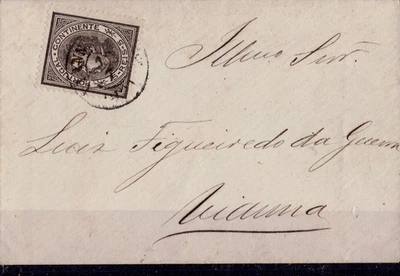 PORTUGAL CONTINENTE
REIS
Illmo Snr.
Luiz Figueiredo da Guerra
Vianna